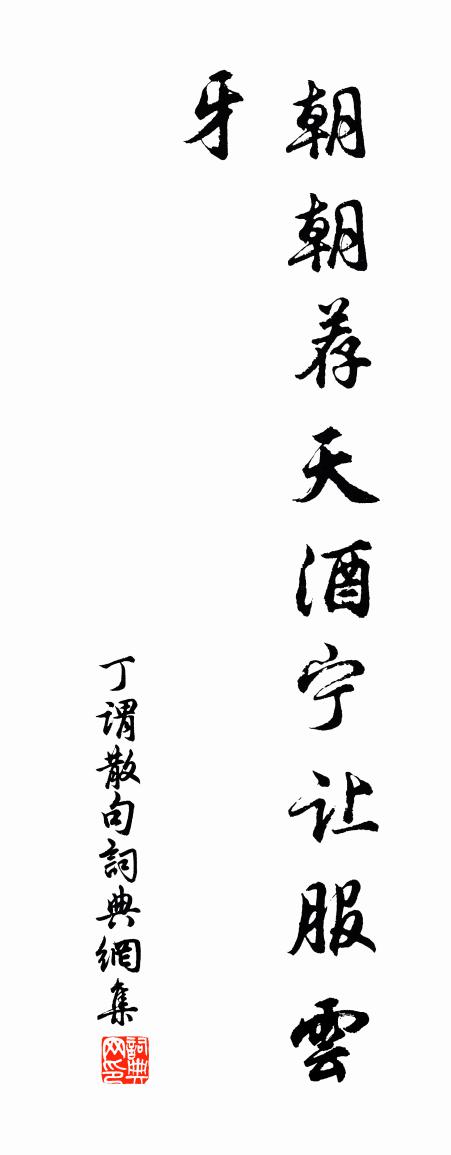 朝朝荐天酒宁让服雲
牙
丁谓散句詞典網集
詞典网印